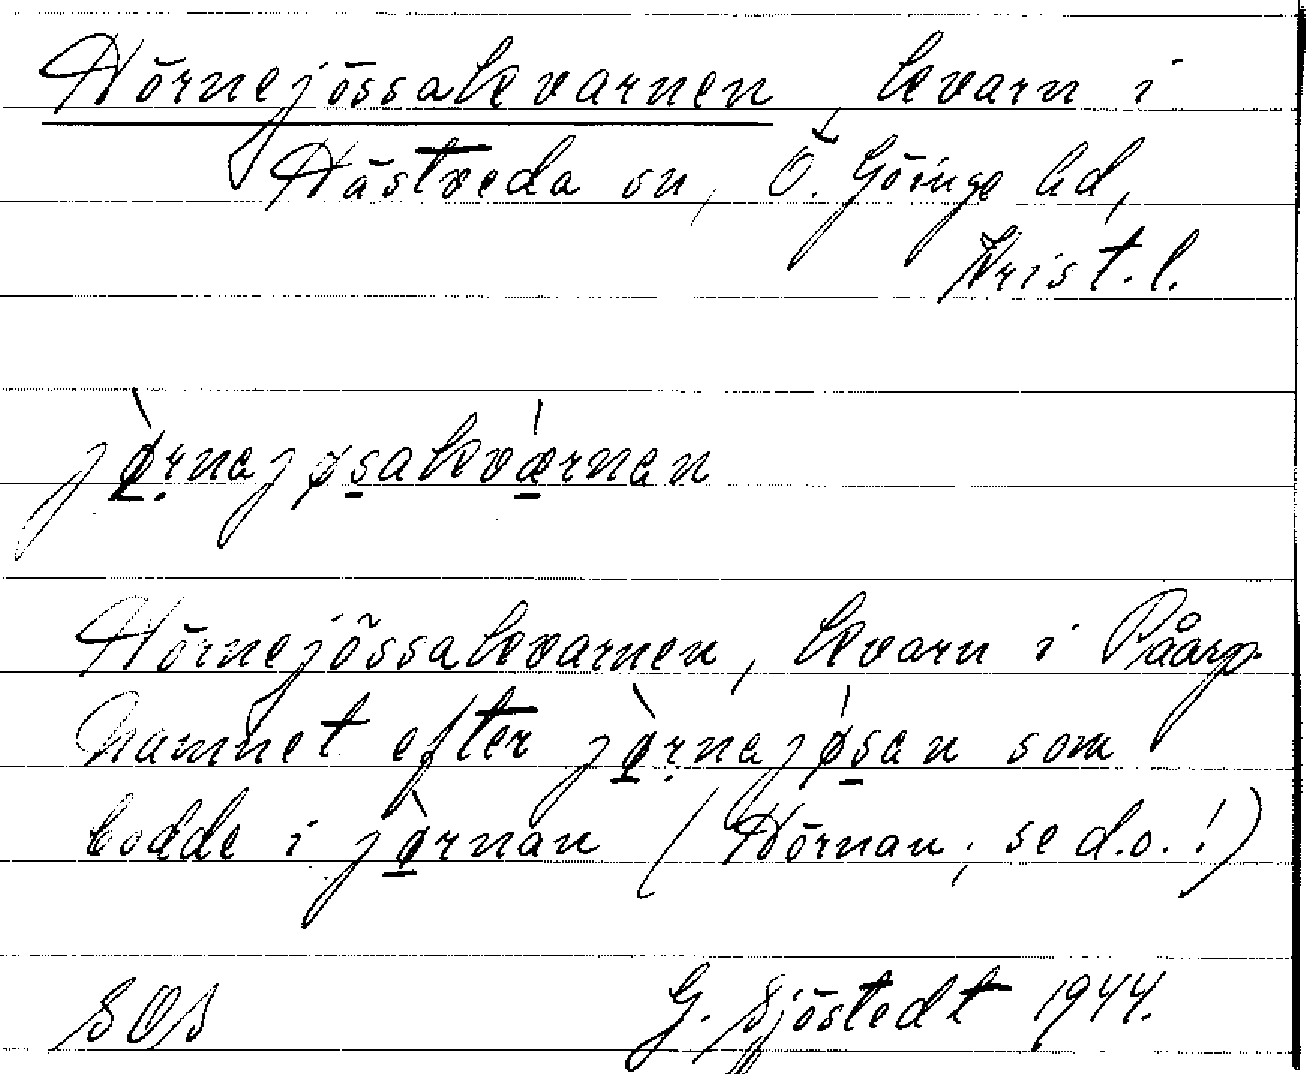 Hörnejössakvarnen, kvarn i
Hästveda sn, Ö. Göinge hd,
Krist. l.
jø̀rnajøsakvǽrnan
Hörnejössakvarnen, kvarn i Påarp.
Namnet efter jø̀rnajǿsan som
bodde i jø̀rnan (Hörnan, se d.o.!)
SOS G. Sjöstedt 1944.